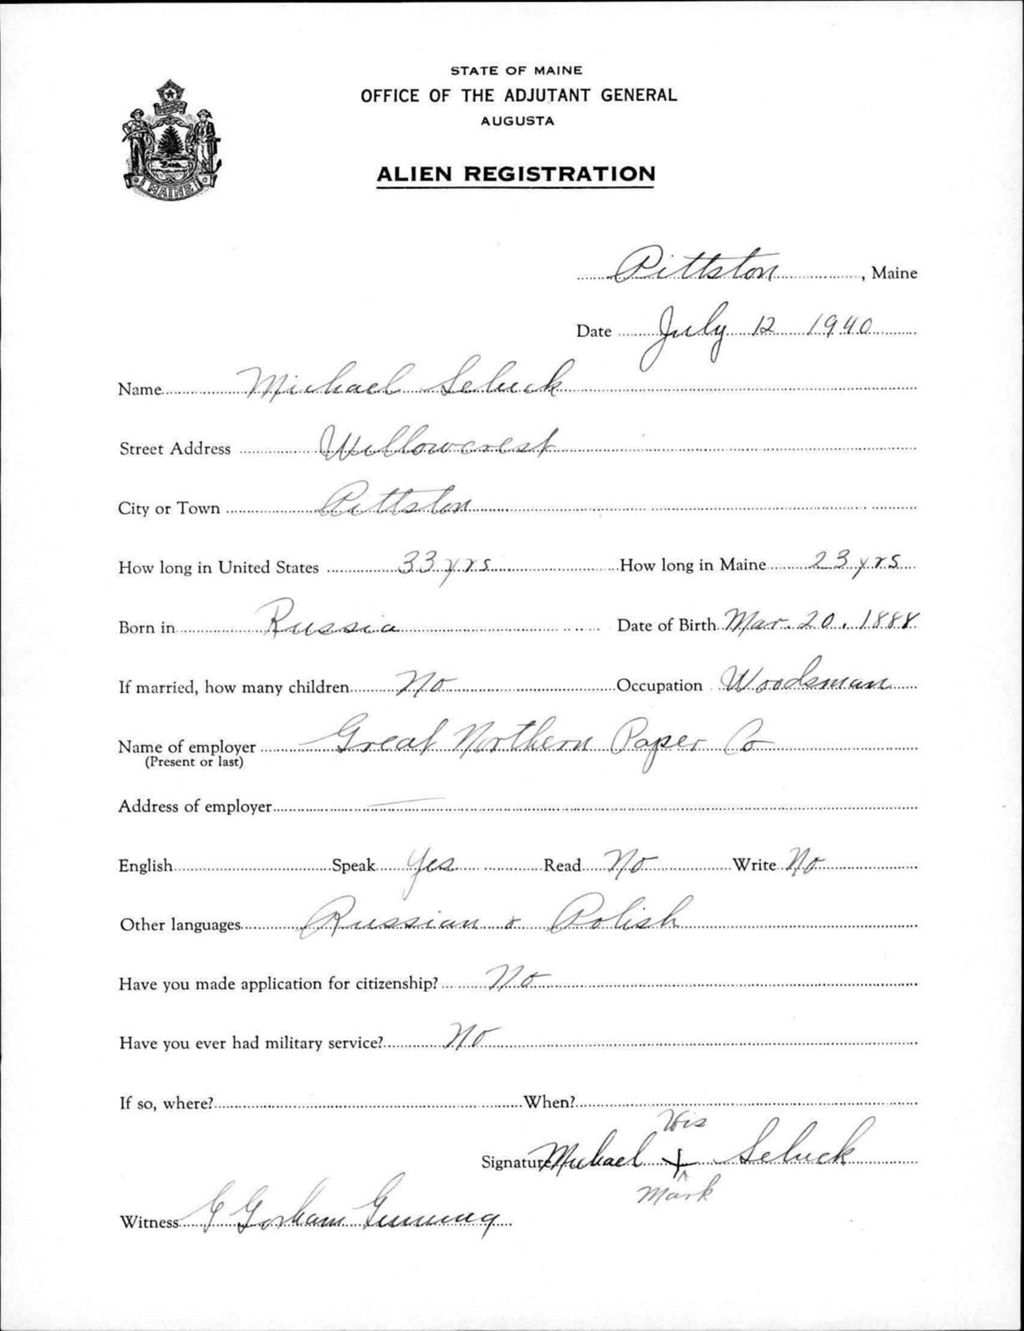 STATE OF MAINE
OFFICE OF THE ADJUTANT GENERAL
AUGUSTA
ALIEN REGISTRATION
MAINE
Pittston, Maine
Date July 12 1940
Name Michael Seluck
Street Address Willowcrest
City or Town Pittston
How long in United States 33 yrs How long in Maine 23 yrs
Born in Russia Date of Birth Mar. 20, 1888
If married, how many children No Occupation Woodsman
Name of employer Great Northern Paper Co
(Present or last)
Address of employer —
English Speak Yes Read No Write No
Other languages Russian & Polish
Have you made application for citizenship? No
Have you ever had military service? No
If so, where? When?
His
Signature Michael X Seluck
Mark
Witness Gorham